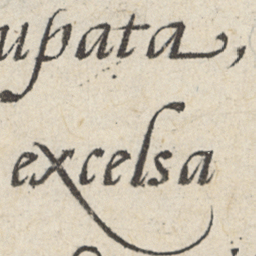 upata,
excelsa